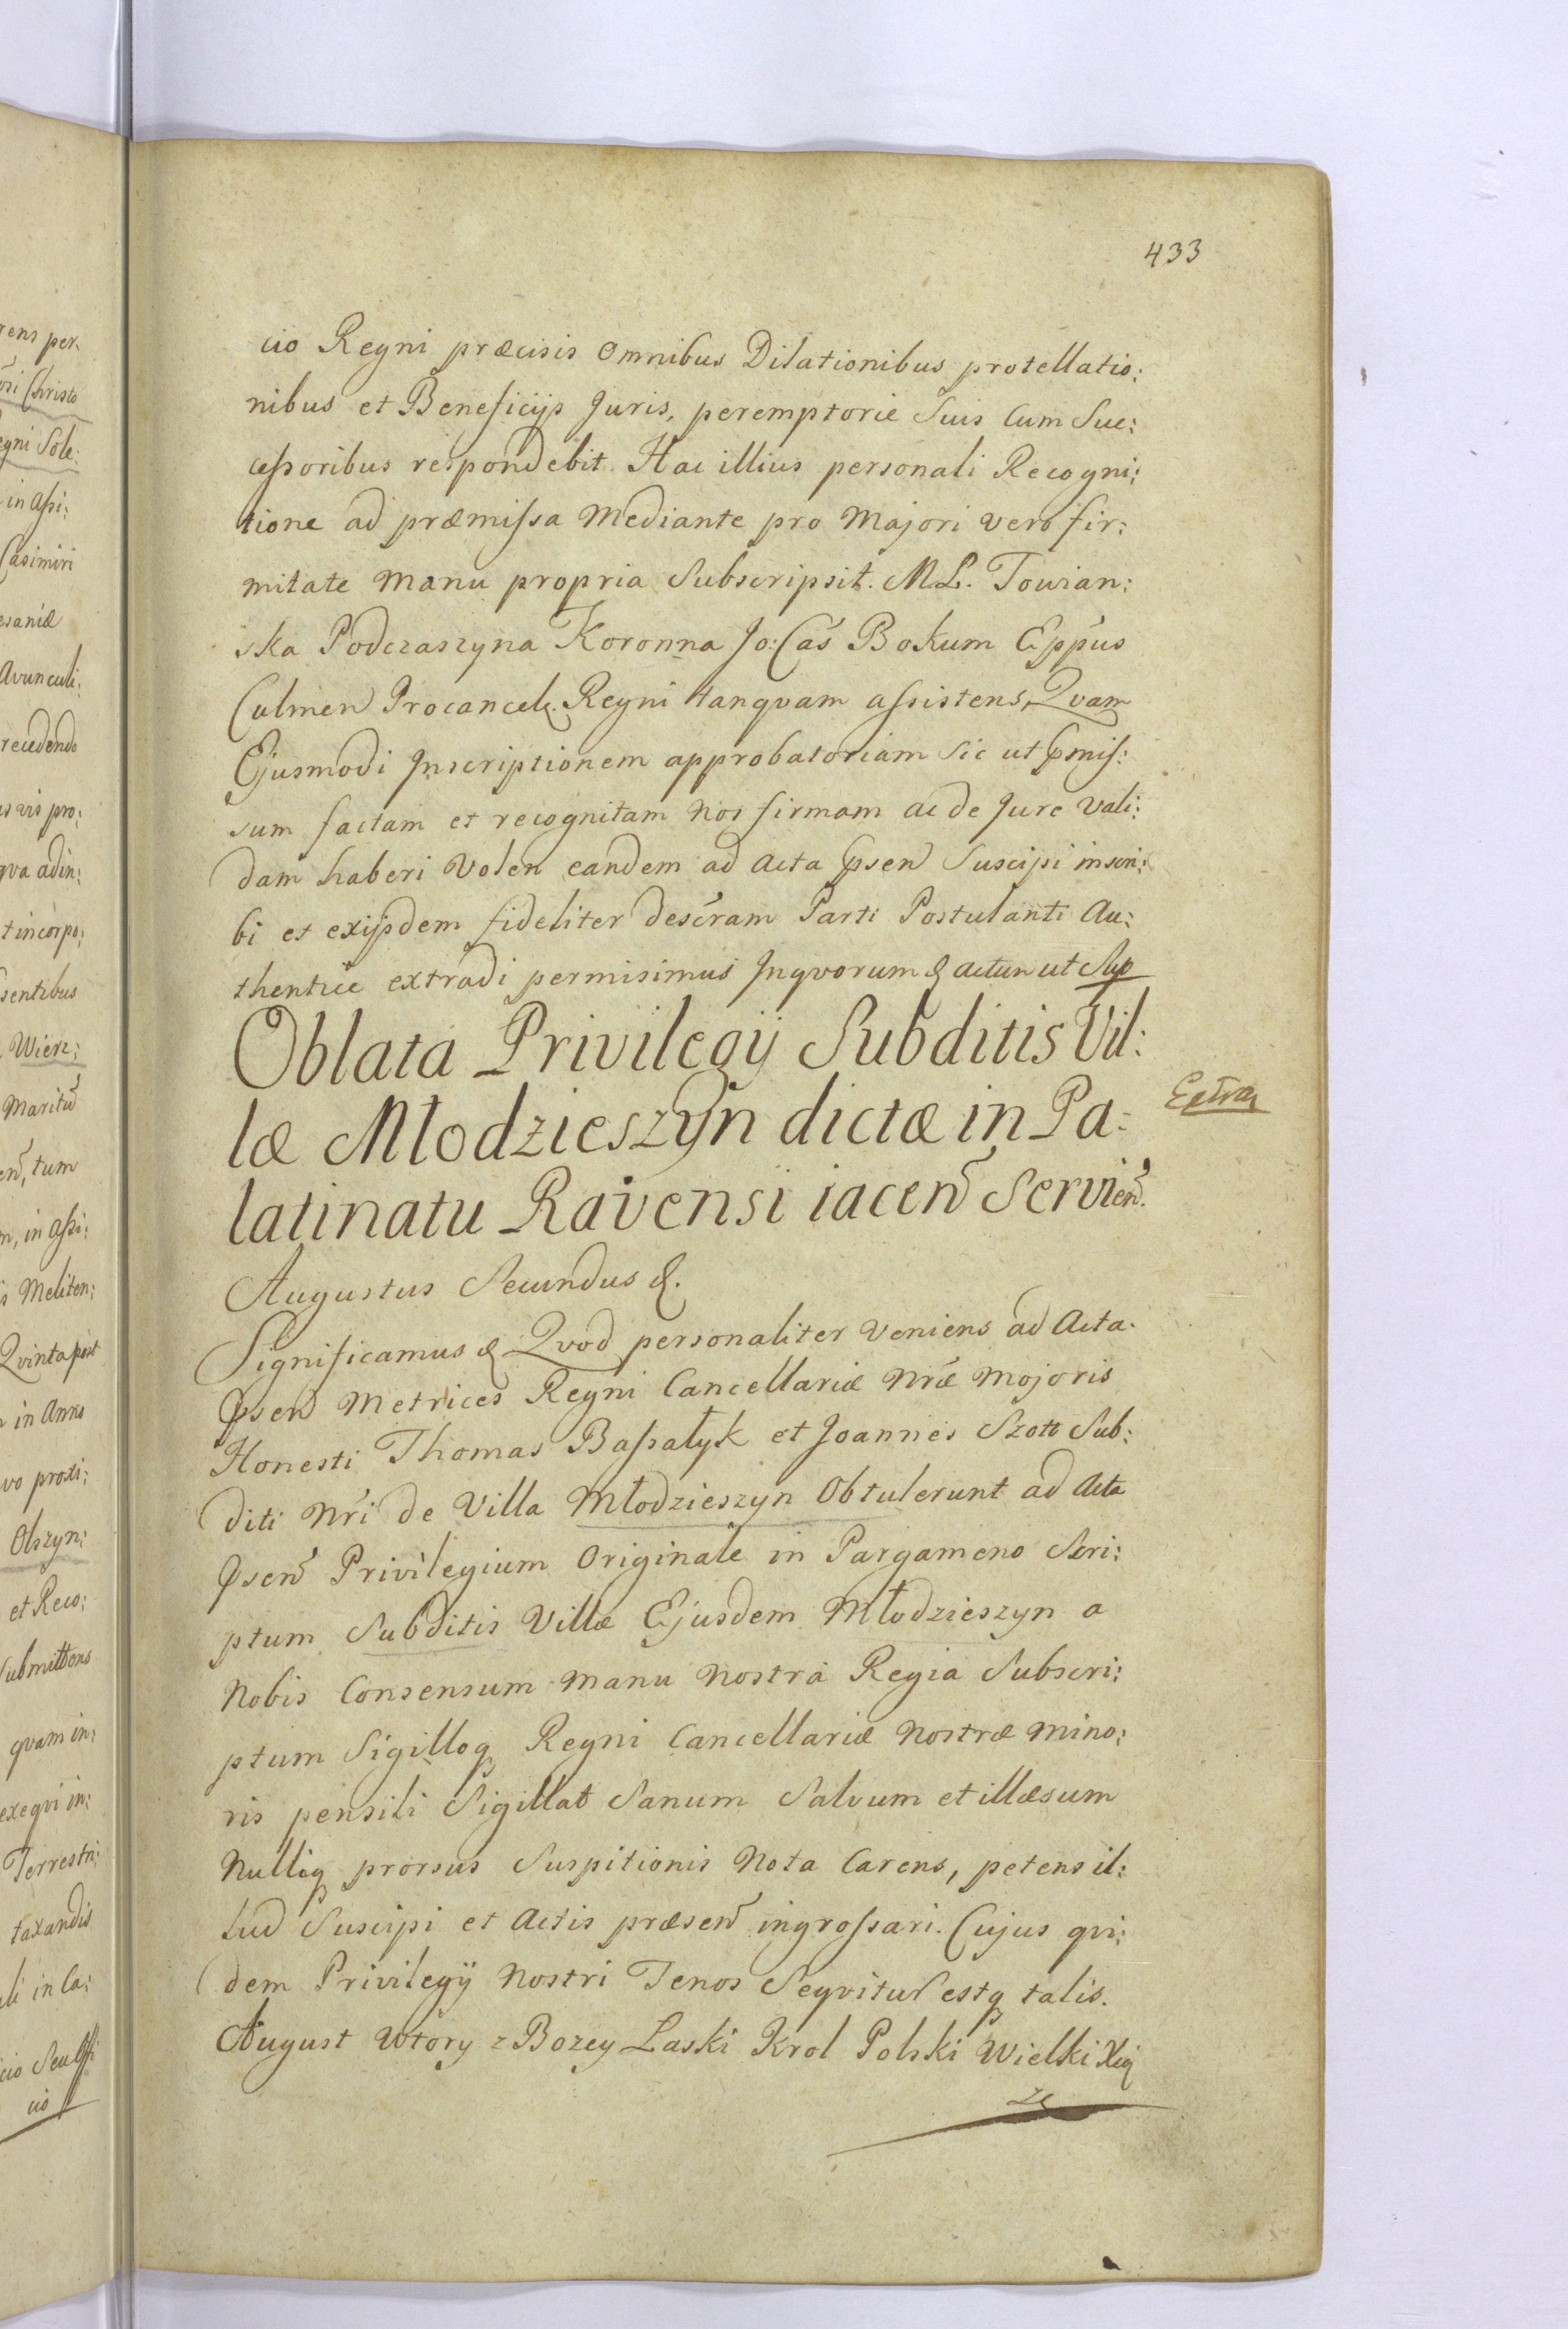 433
cio Regni præcisis Omnibus Dilationibus protellatio:
nibus et Beneficijs Juris, peremptorie Suis Cum Suc:
cessoribus respondebit. Hac illius personali Recogni:
tione ad præmissa Mediante pro Majori vero fir:
mitate Manu propria Subscripsit. M L. Towian:
ska Podczaszyna Koronna Jo: Cas Bokum Eppus
Culmen Procancel. Regni tanqvam assistens, Qvam
Ejusmodi Inscriptionem approbatoriam Sic ut pmis:
sum factam et recognitam Nos firmam ac de Jure Vali:
dam haberi Volen eandem ad Acta psen Suscipi inscri:
bi et exijsdem fideliter descram Parti Postulanti Au:
thentice extradi permisimus Inqvorum & actum ut Sup
Oblata Privilegij Subditis Vil:
læ Młodzieszyn dictæ in Pa:
latinatu Ravensi iacen Servien.
Extra
Augustus Secundus &.
Significamus & Qvod personaliter Veniens ad Acta
psen Metrices Regni Cancellariæ Nræ Majoris
Honesti Thomas Bassałyk et Joannes Szott Sub:
diti Nri de Villa Młodzieszyn Obtulerunt ad Acta
psen Privilegium Originale in Pargameno Scri:
ptum Subditis Villæ Ejusdem Młodzieszyn a
Nobis Consensum Manu Nostra Regia Subscri:
ptum Sigilloq Regni Cancellariæ Nostræ Mino:
ris pensili Sigillat Sanum Salvum et illæsum
Nulliq prorsus Suspitionis Nota Carens, petens il:
lud Suscipi et Actis præsen ingrossari. Cujus qvi:
dem Privilegij Nostri Tenos Seqvitur estq talis.
August Wtory z Bozey Laski Krol Polski Wielki Xią
ze